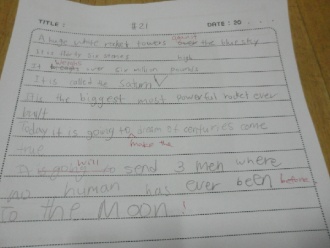 TITLE : #21 DATE : 20 . . .
A huge white rocket towers above the blue sky
It is thirty six stories high
It weighs over six million pounds
It is called the Saturn V
It is the biggest most powerful rocket ever
built
Today it is going to make the dream of centuries come
true
It is going will to send 3 men where
no human has ever been before
to the Moon!